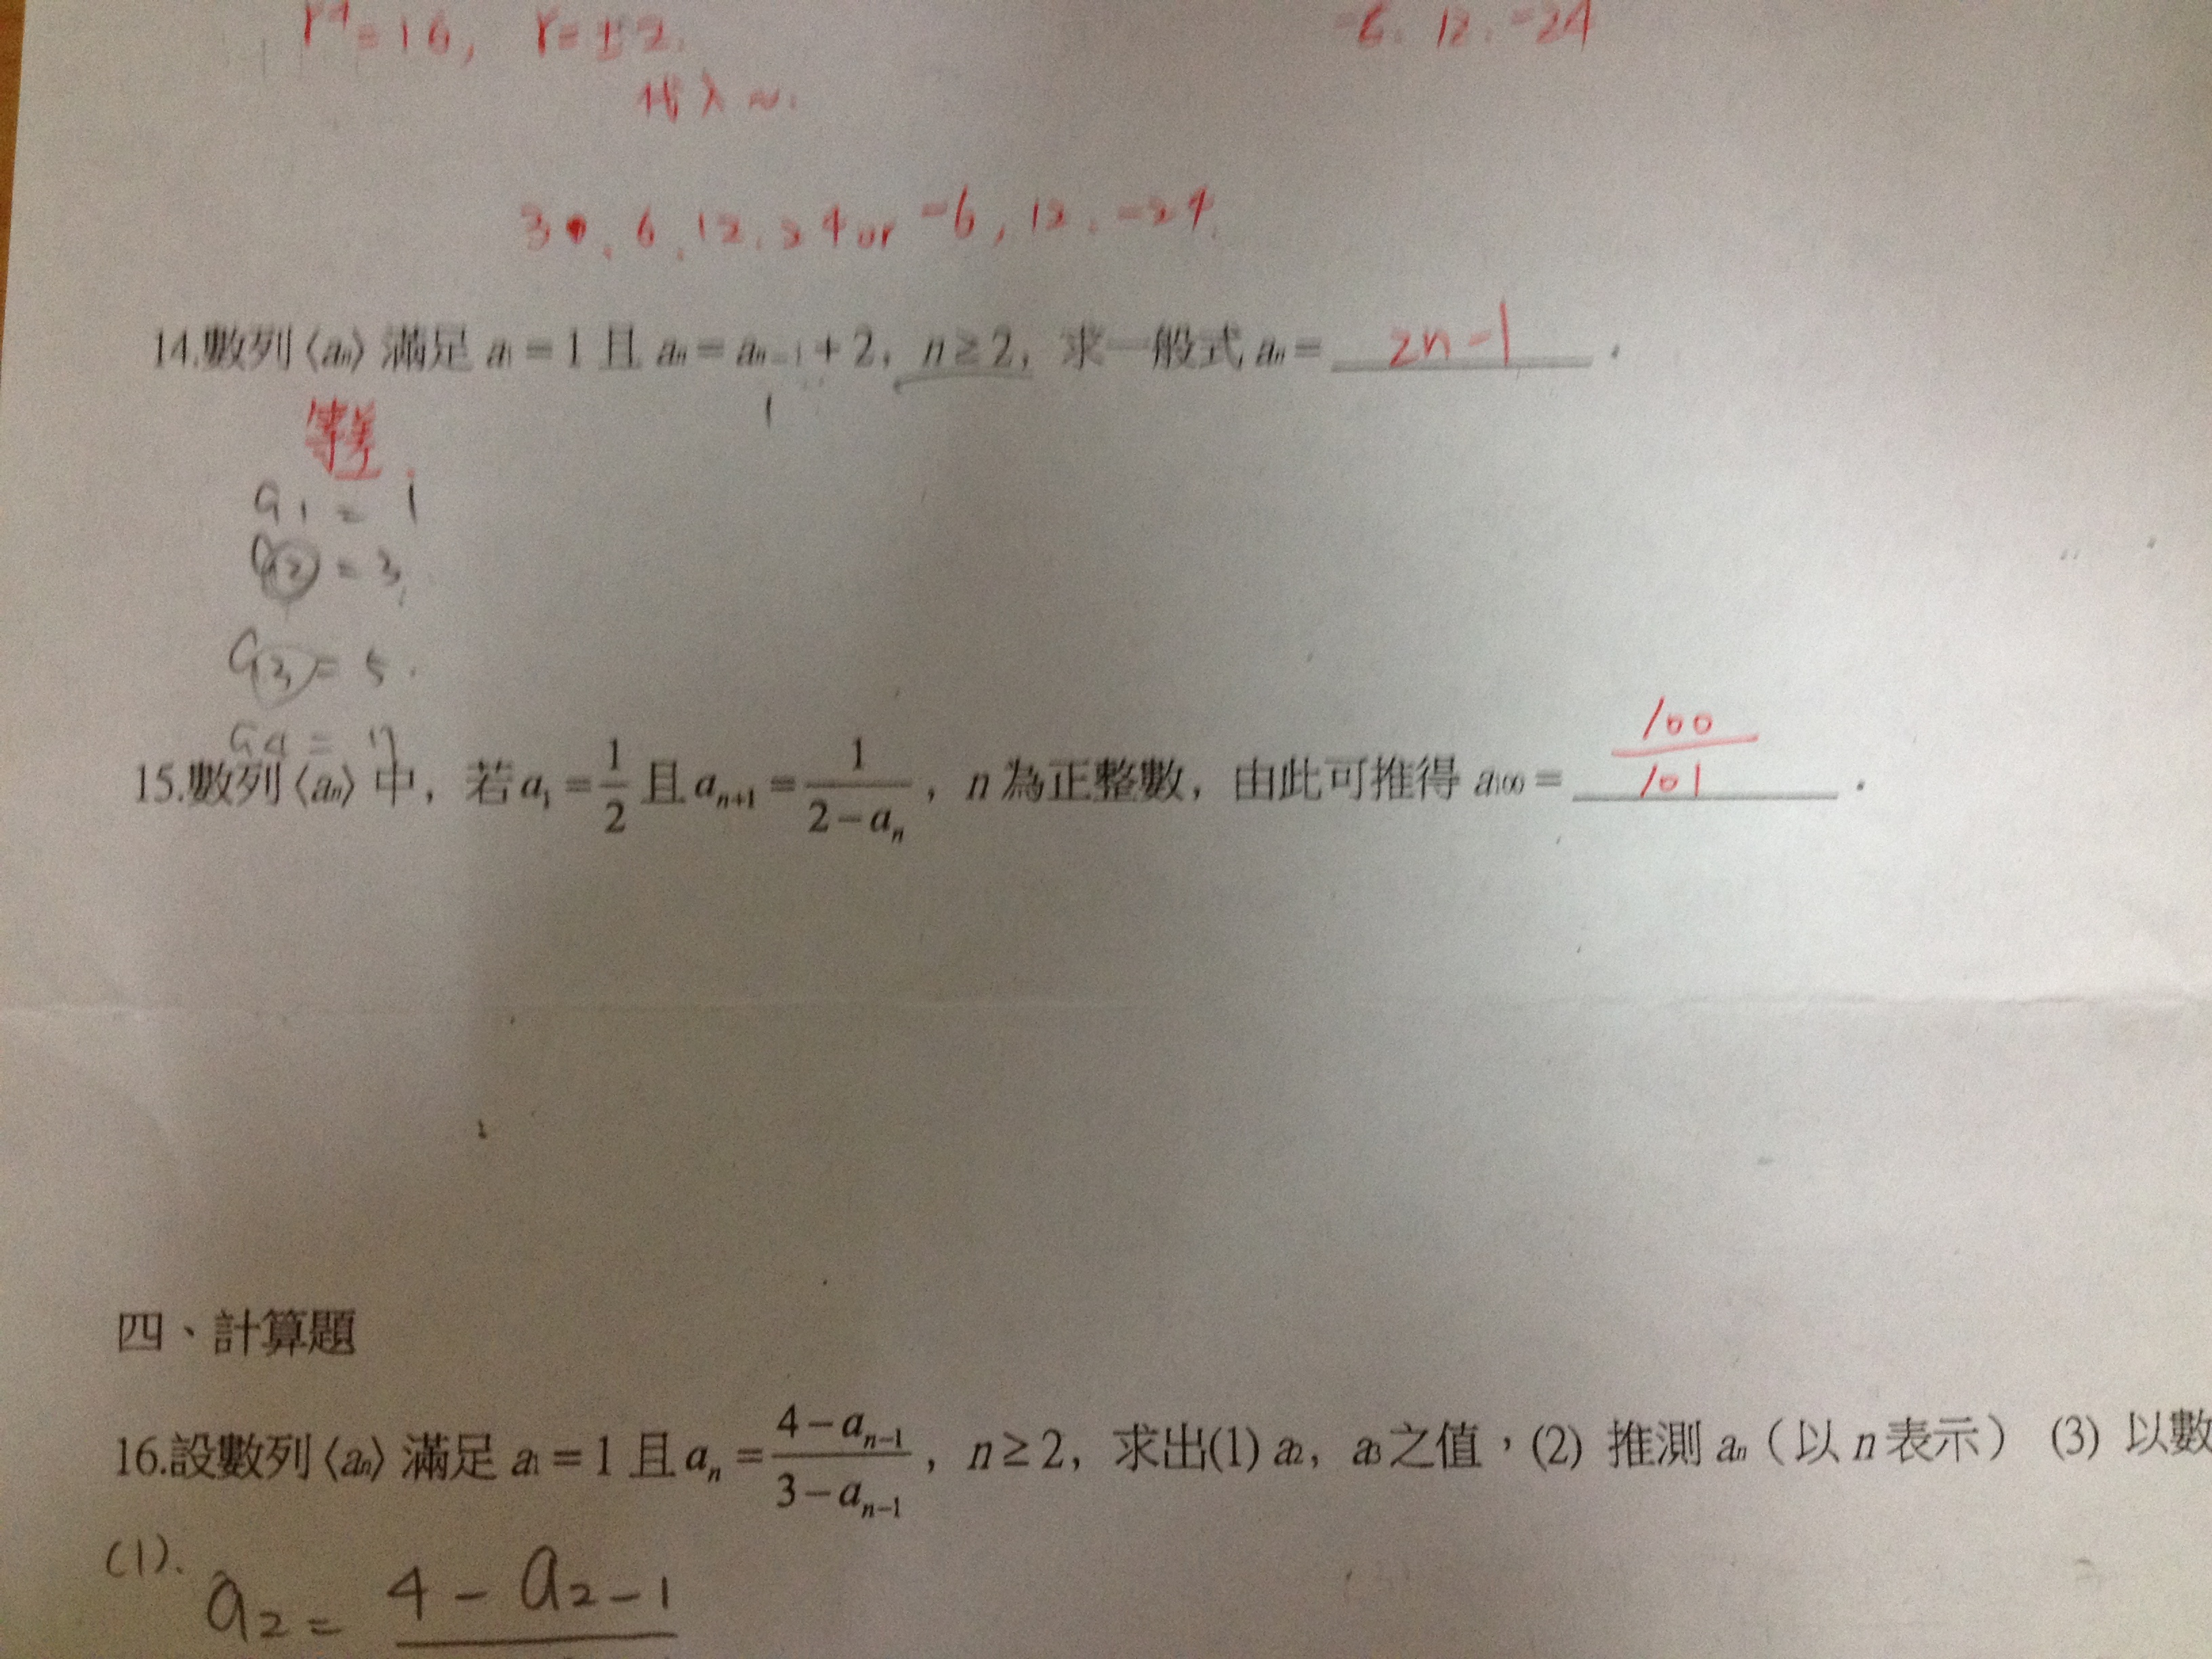 r⁴=16, r=±2.
-6. 12. -24
代入~.
3, 6, 12, 24 or -6, 12, -24.
14.數列〈aₙ〉滿足 a₁ = 1 且 aₙ = aₙ₋₁ + 2, n ≥ 2, 求一般式 aₙ = 2n-1 .
1
等差
a₁ = 1
a₂ = 3
a₃ = 5.
a₄ = 7
15.數列〈aₙ〉中, 若 a₁ = 1/2 且 aₙ₊₁ = 1/(2−aₙ), n 為正整數, 由此可推得 a₁₀₀ = 100/101 .
四、計算題
16.設數列〈aₙ〉滿足 a₁ = 1 且 aₙ = (4−aₙ₋₁)/(3−aₙ₋₁), n ≥ 2, 求出(1) a₂, a₃ 之值,(2) 推測 aₙ(以 n 表示) (3) 以數
(1).
a₂ = 4 - a₂₋₁